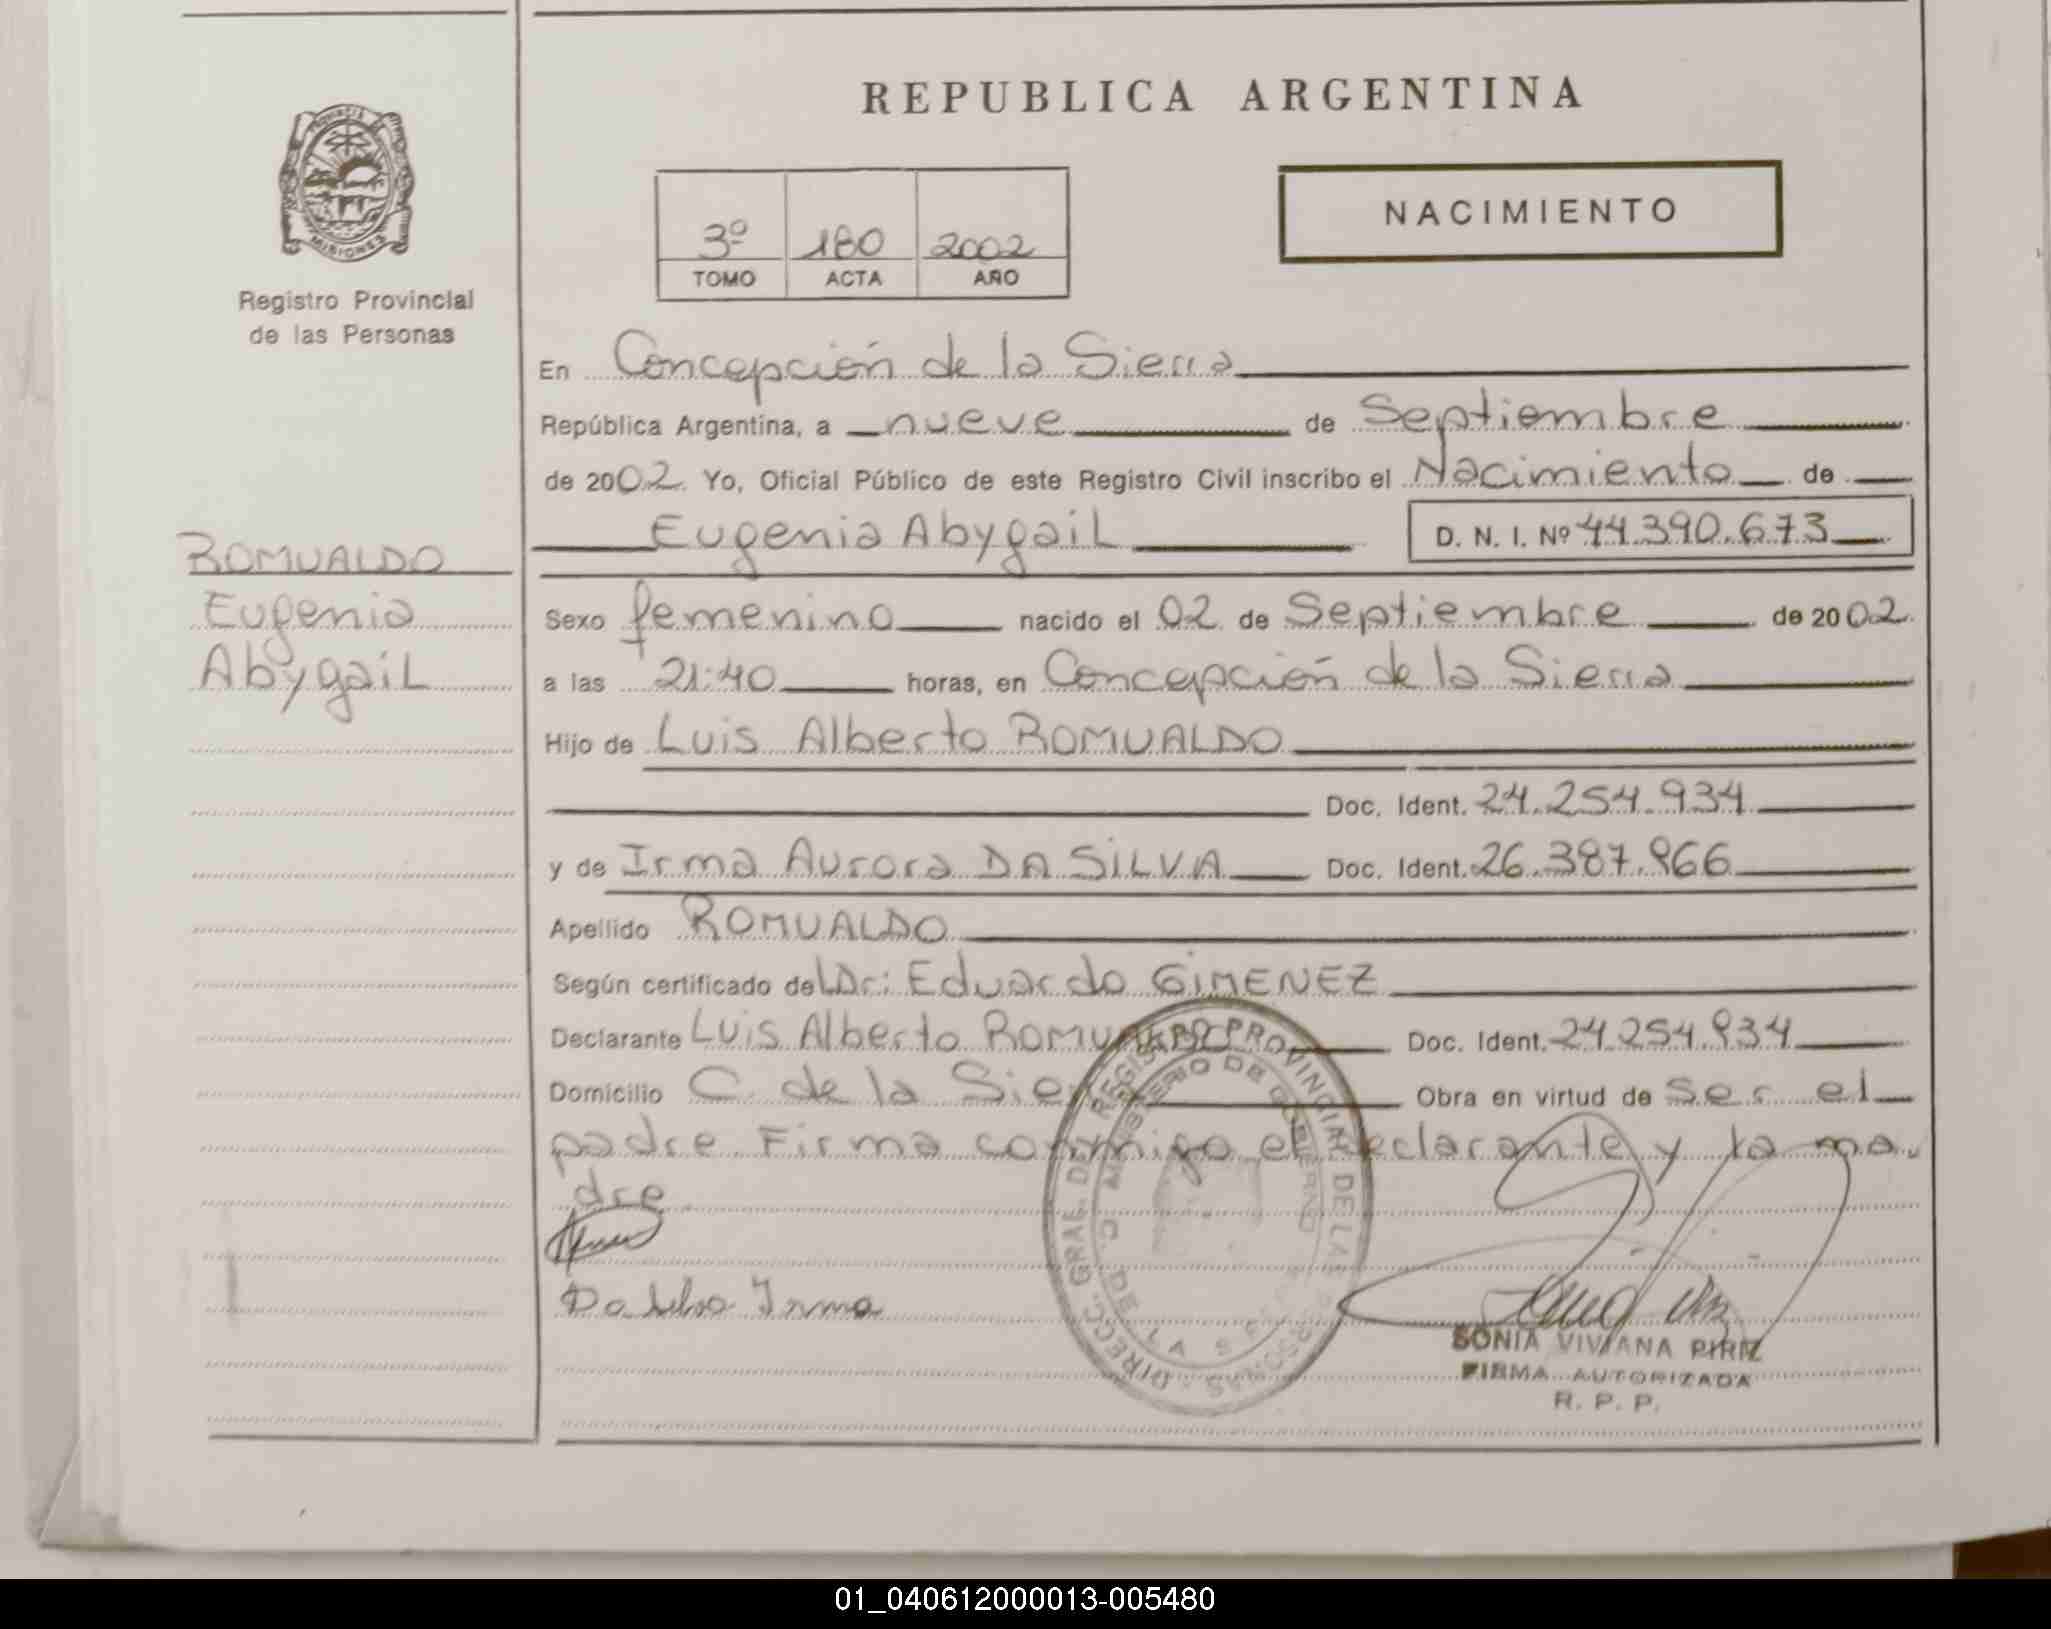 REPUBLICA ARGENTINA
PROVINCIA DE
MISIONES
Registro Provincial
de las Personas
NACIMIENTO
3º 180 2002
TOMO ACTA AÑO
En Concepción de la Sierra
República Argentina, a nueve de Septiembre
de 2002 Yo, Oficial Público de este Registro Civil inscribo el Nacimiento de
Eugenia Abygail D. N. I. Nº 44.390.673
ROMUALDO
Eugenia
Abygail
Sexo femenino nacido el 02 de Septiembre de 2002
a las 21:40 horas, en Concepción de la Sierra
Hijo de Luis Alberto ROMUALDO
Doc. Ident. 24.254.934
y de Irma Aurora DA SILVA Doc. Ident. 26.387.966
Apellido ROMUALDO
Según certificado del Dr: Eduardo GIMENEZ
Declarante Luis Alberto ROMUALDO Doc. Ident. 24.254.934
Domicilio C. de la Sierra Obra en virtud de ser el
padre. Firma conmigo el declarante y la ma
dre
Da Silva Irma
DIRECC. GRAL. DEL REGISTRO PROVINCIAL DE LAS PERSONAS
MINISTERIO DE GOBIERNO
C. DE LA SIERRA
SONIA VIVIANA PIRIZ
FIRMA AUTORIZADA
R. P. P.
01_040612000013-005480